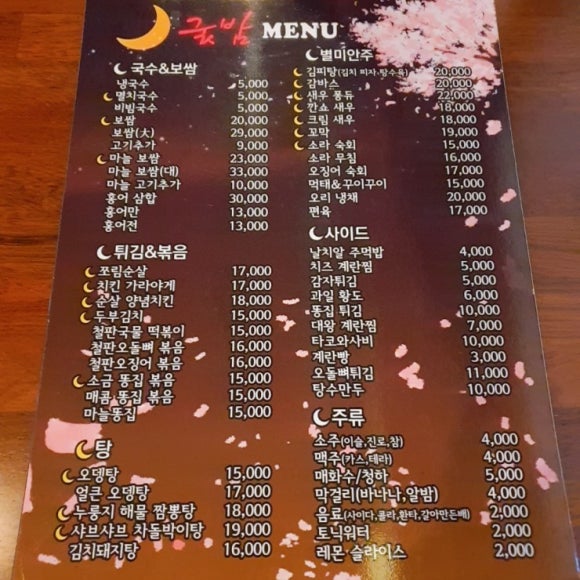 굿밤 MENU
국수&보쌈
냉국수 5,000
멸치국수 5,000
비빔국수 5,000
보쌈 20,000
보쌈(大) 29,000
고기추가 9,000
마늘 보쌈 23,000
마늘 보쌈(대) 33,000
마늘 고기추가 10,000
홍어 삼합 30,000
홍어만 13,000
홍어전 13,000
튀김&볶음
쪼림순살 17,000
치킨 가라아게 17,000
순살 양념치킨 18,000
두부김치 15,000
철판국물 떡볶이 15,000
철판오돌뼈 볶음 16,000
철판오징어 볶음 16,000
소금 똥집 볶음 15,000
매콤 똥집 볶음 15,000
마늘똥집 15,000
탕
오뎅탕 15,000
얼큰 오뎅탕 17,000
누룽지 해물 짬뽕탕 18,000
샤브샤브 차돌박이탕 19,000
김치돼지탕 16,000
별미안주
김피탕(김치 피자 탕수육) 20,000
감바스 20,000
새우 퐁듀 22,000
깐쇼 새우 18,000
크림 새우 18,000
꼬막 19,000
소라 숙회 15,000
소라 무침 16,000
오징어 숙회 17,000
먹태&꾸이꾸이 15,000
오리 냉채 20,000
편육 17,000
사이드
날치알 주먹밥 4,000
치즈 계란찜 5,000
감자튀김 5,000
과일 황도 6,000
똥집 튀김 10,000
대왕 계란찜 7,000
타코와사비 10,000
계란빵 3,000
오돌뼈튀김 11,000
탕수만두 10,000
주류
소주(이슬,진로,참) 4,000
맥주(카스,테라) 4,000
매화수/청하 5,000
막걸리(바나나,알밤) 4,000
음료(사이다,콜라,환타,갈아만든배) 2,000
토닉워터 2,000
레몬 슬라이스 2,000